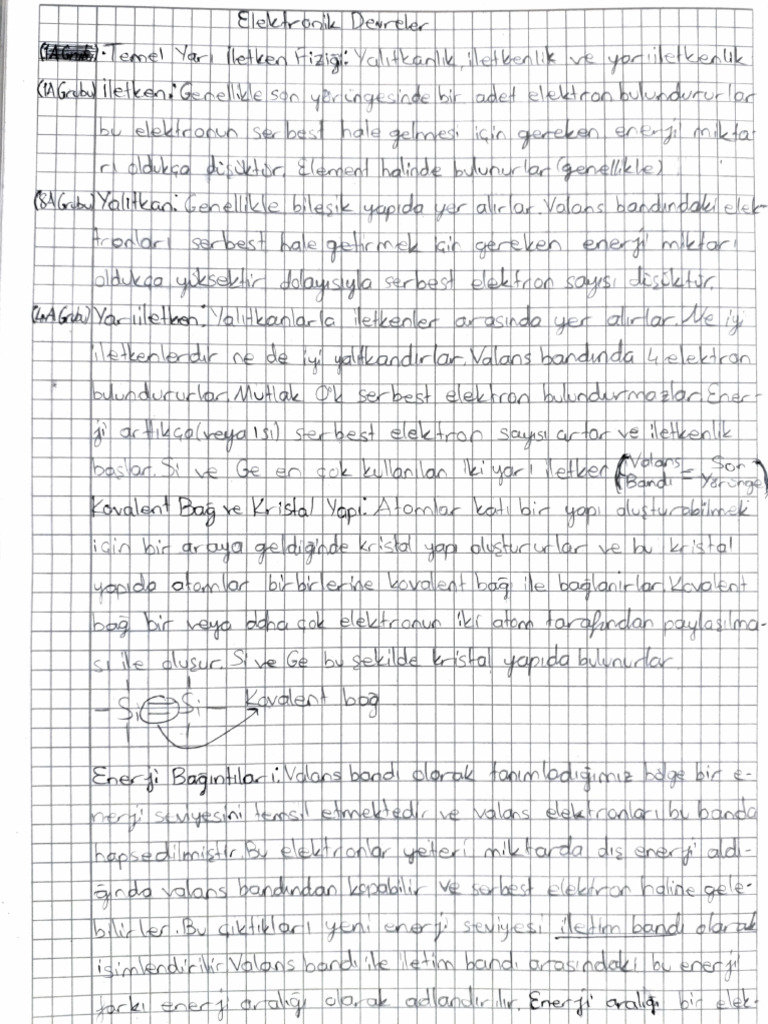 Elektronik Devreler
• Temel Yarı iletken Fiziği: Yalıtkanlık, iletkenlik ve yarıiletkenlik
(1A Grubu) iletken: Genellikle son yörüngesinde bir adet elektron bulundururlar
bu elektronun serbest hale gelmesi için gereken enerji mikta-
rı oldukça düşüktür. Element halinde bulunurlar (genellikle)
(8A Grubu) Yalıtkan: Genellikle bileşik yapıda yer alırlar. Valans bandındaki elek-
tronları serbest hale getirmek için gereken enerji miktarı
oldukça yüksektir dolayısıyla serbest elektron sayısı düşüktür.
(4A Grubu) Yarıiletken: Yalıtkanlarla iletkenler arasında yer alırlar. Ne iyi
iletkenlerdir ne de iyi yalıtkandırlar. Valans bandında 4 elektron
bulundururlar. Mutlak 0°k serbest elektron bulundurmazlar. Ener-
ji artıkça (veya ısı) serbest elektron sayısı artar ve iletkenlik
başlar. Si ve Ge en çok kullanılan iki yarı iletken (Valans Bandı = Son Yörünge)
Kovalent Bağ ve Kristal Yapı: Atomlar katı bir yapı oluşturabilmek
için bir araya geldiğinde kristal yapı oluştururlar ve bu kristal
yapıda atomlar birbirlerine kovalent bağ ile bağlanırlar. Kovalent
bağ bir veya daha çok elektronun iki atom tarafından paylaşılma-
sı ile oluşur. Si ve Ge bu şekilde kristal yapıda bulunurlar.
Si Si Kovalent bağ
Enerji Bağıntıları: Valans bandı olarak tanımladığımız bölge bir e-
nerji seviyesini temsil etmektedir ve valans elektronları bu banda
hapsedilmiştir. Bu elektronlar yeteri miktarda dış enerji aldı-
ğında valans bandından kopabilir ve serbest elektron haline gele-
bilirler. Bu çıktıkları yeni enerji seviyesi iletim bandı olarak
isimlendirilir. Valans bandı ile iletim bandı arasındaki bu enerji
farkı enerji aralığı olarak adlandırılır. Enerji aralığı bir elek-